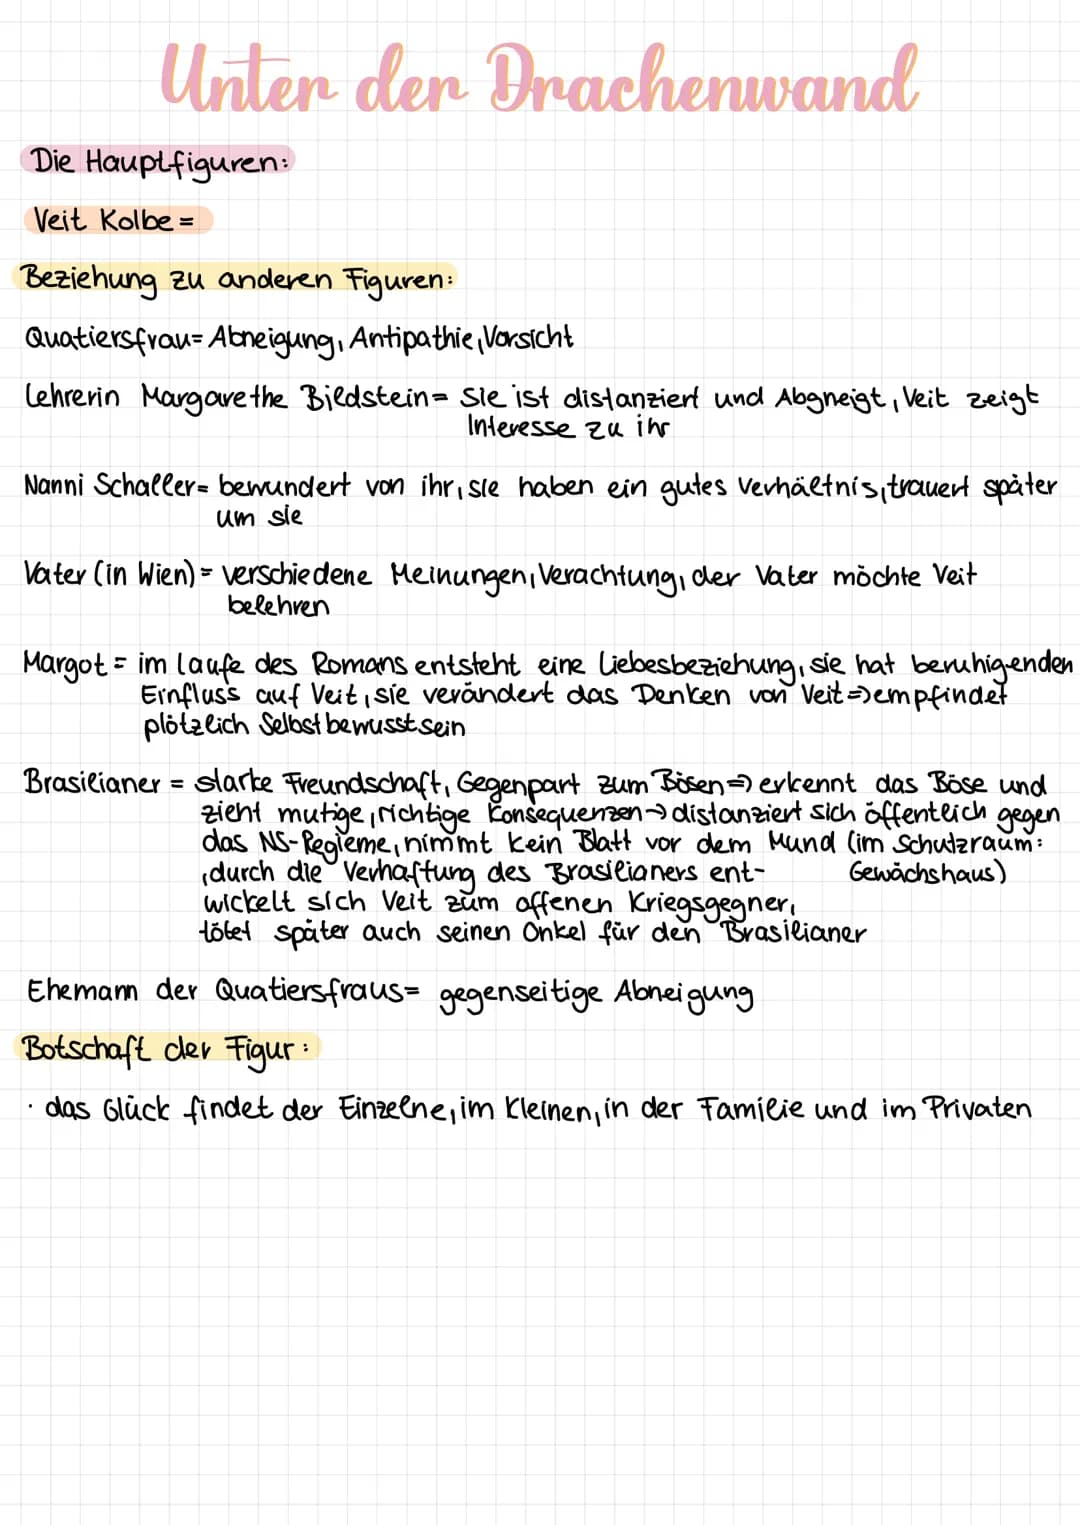 Unter der Drachenwand
Die Hauptfiguren:
Veit Kolbe =
Beziehung zu anderen Figuren:
Quatiersfrau= Abneigung, Antipathie, Vorsicht
Lehrerin Margarethe Bildstein= Sie ist distanziert und Abgneigt, Veit zeigt
Interesse zu ihr
Nanni Schaller= bewundert von ihr, sie haben ein gutes Verhältnis, trauert später
um sie
Vater (in Wien) = verschiedene Meinungen, Verachtung, der Vater möchte Veit
belehren
Margot = im laufe des Romans entsteht eine Liebesbeziehung, sie hat beruhigenden
Einfluss auf Veit, sie verändert das Denken von Veit => empfindet
plötzlich Selbstbewusstsein
Brasilianer = starke Freundschaft, Gegenpart zum Bösen => erkennt das Böse und
zieht mutige, richtige Konsequenzen → distanziert sich öffentlich gegen
das NS-Regieme, nimmt kein Blatt vor dem Mund (im Schutzraum:
Gewächshaus)
, durch die Verhaftung des Brasilianers ent-
wickelt sich Veit zum offenen Kriegsgegner,
tötet später auch seinen Onkel für den Brasilianer
Ehemann der Quatiersfraus= gegenseitige Abneigung
Botschaft der Figur:
· das Glück findet der Einzelne, im Kleinen, in der Familie und im Privaten